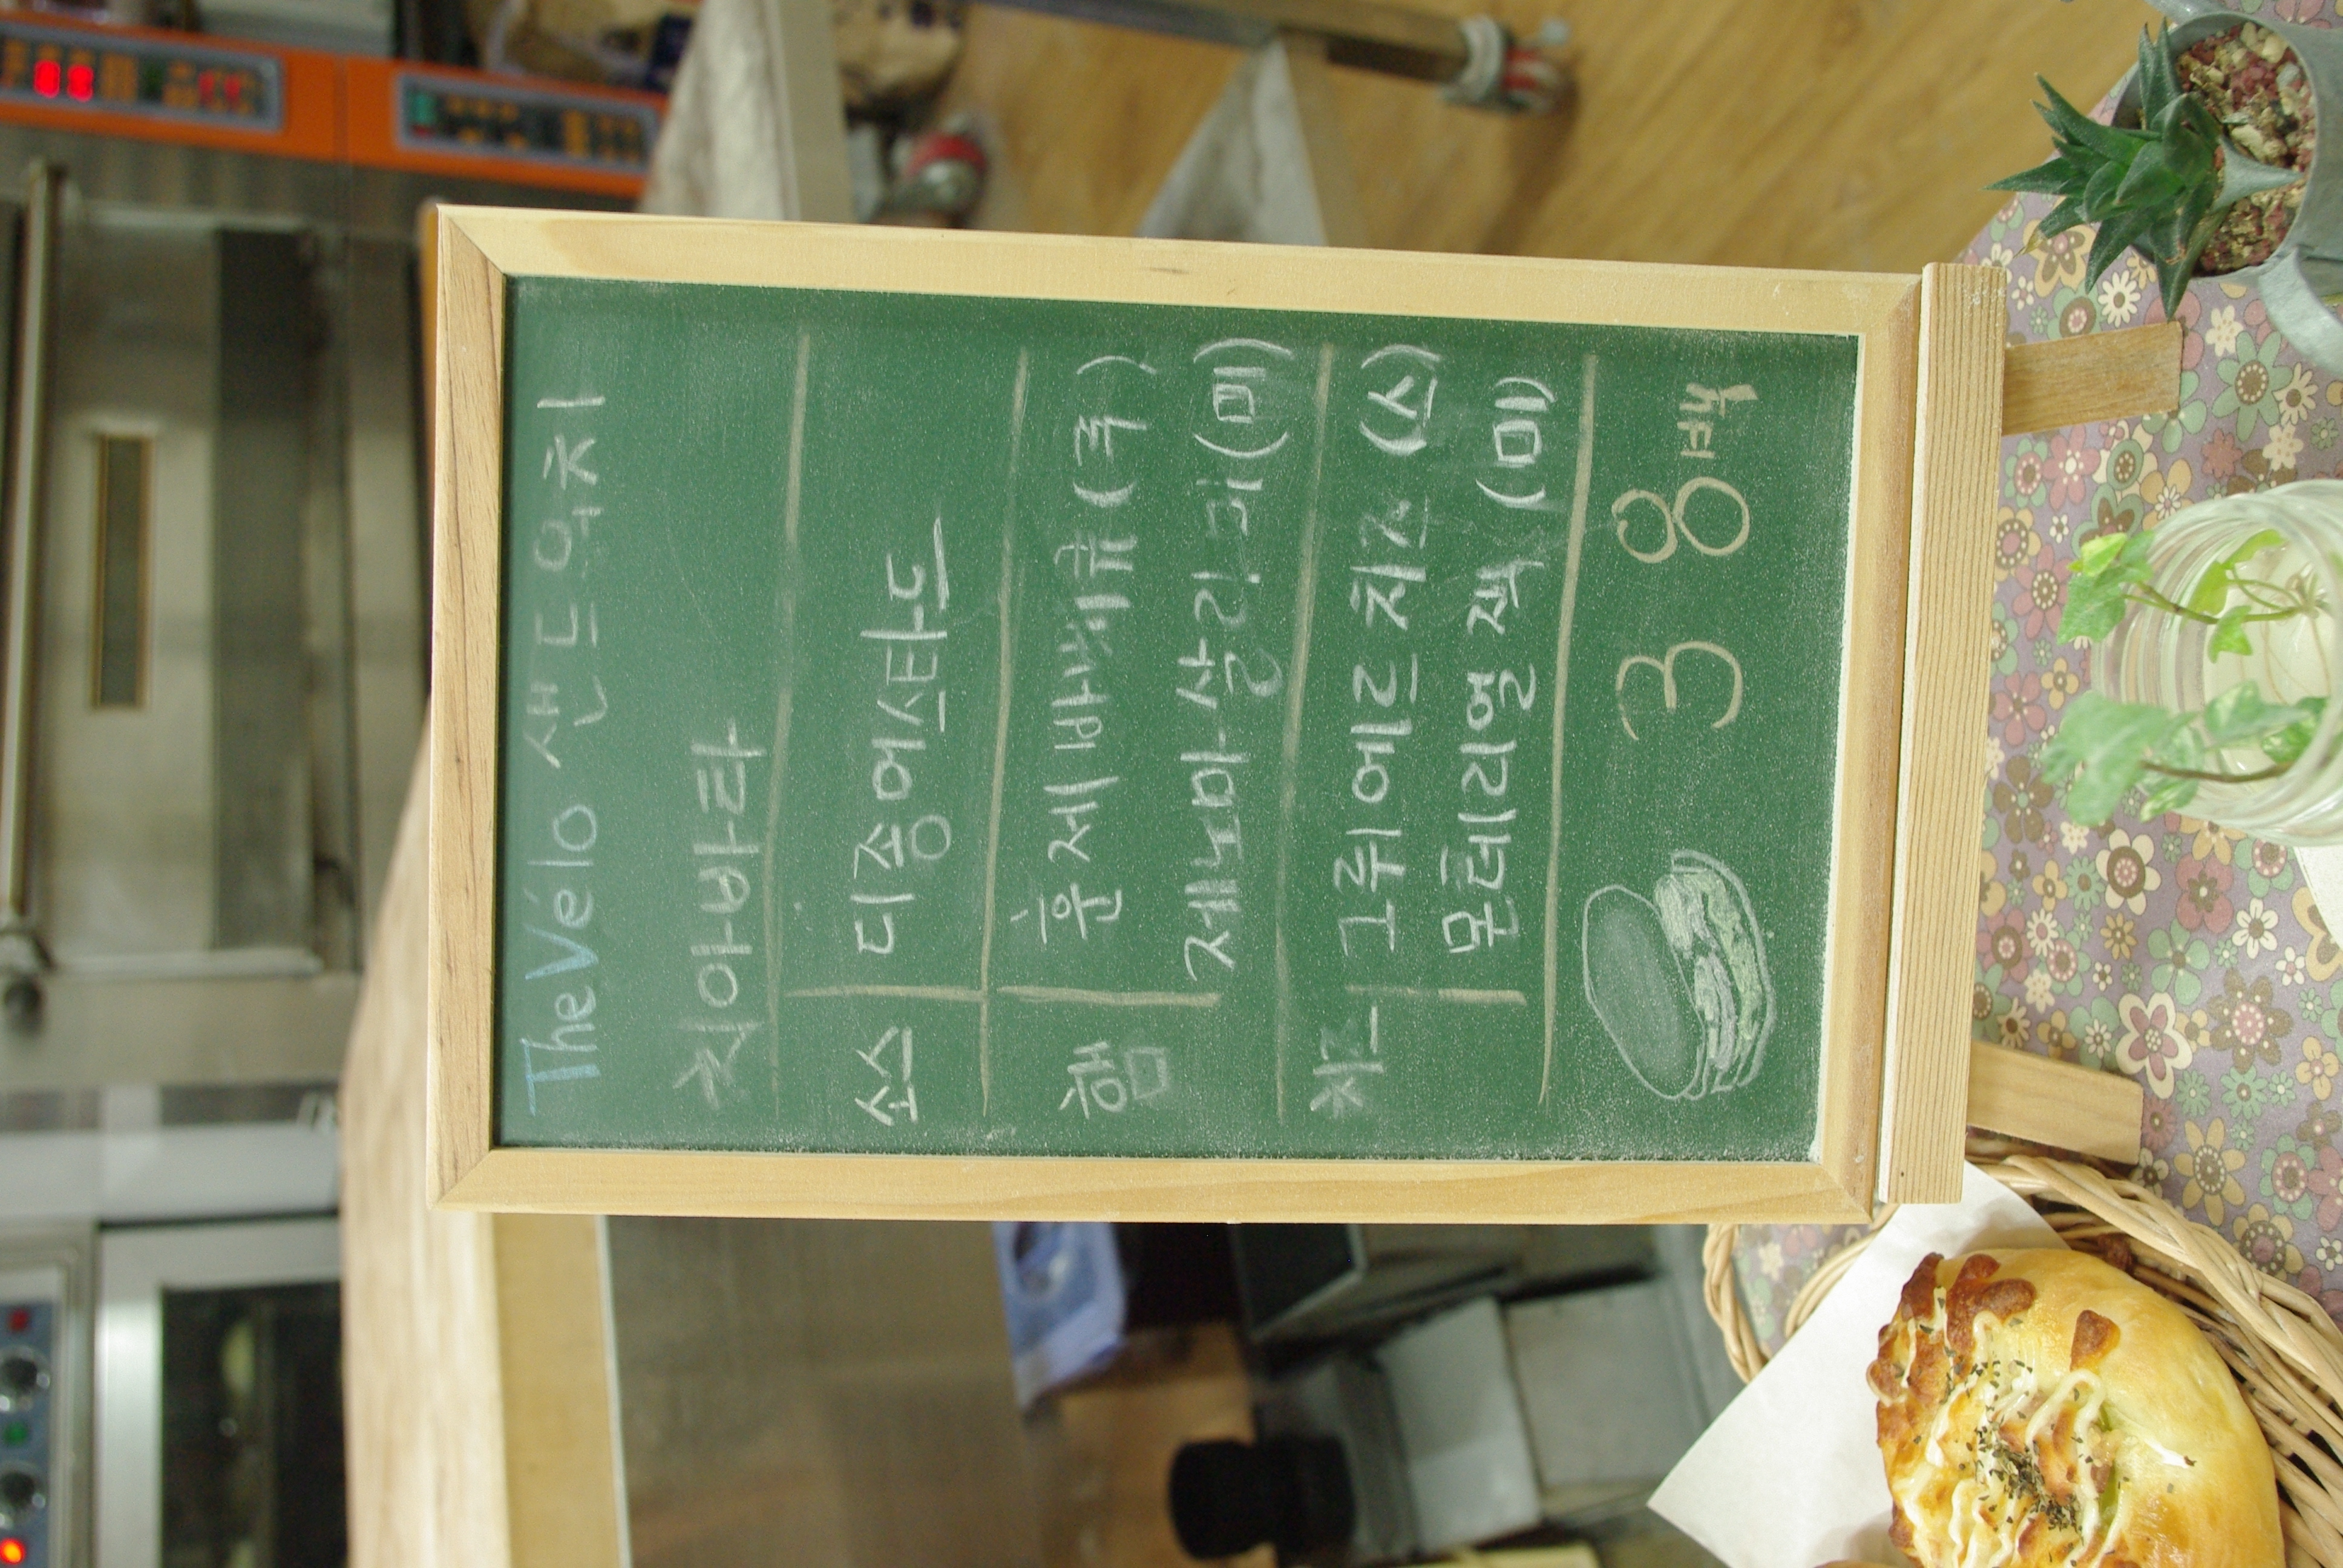 TheVélo 샌드위치
치아바타
소스 디종머스타드
햄 훈제바베큐(국)
제노바살라미(미)
치즈 그뤼에르치즈(스)
몬테리얼잭(미)
38핸